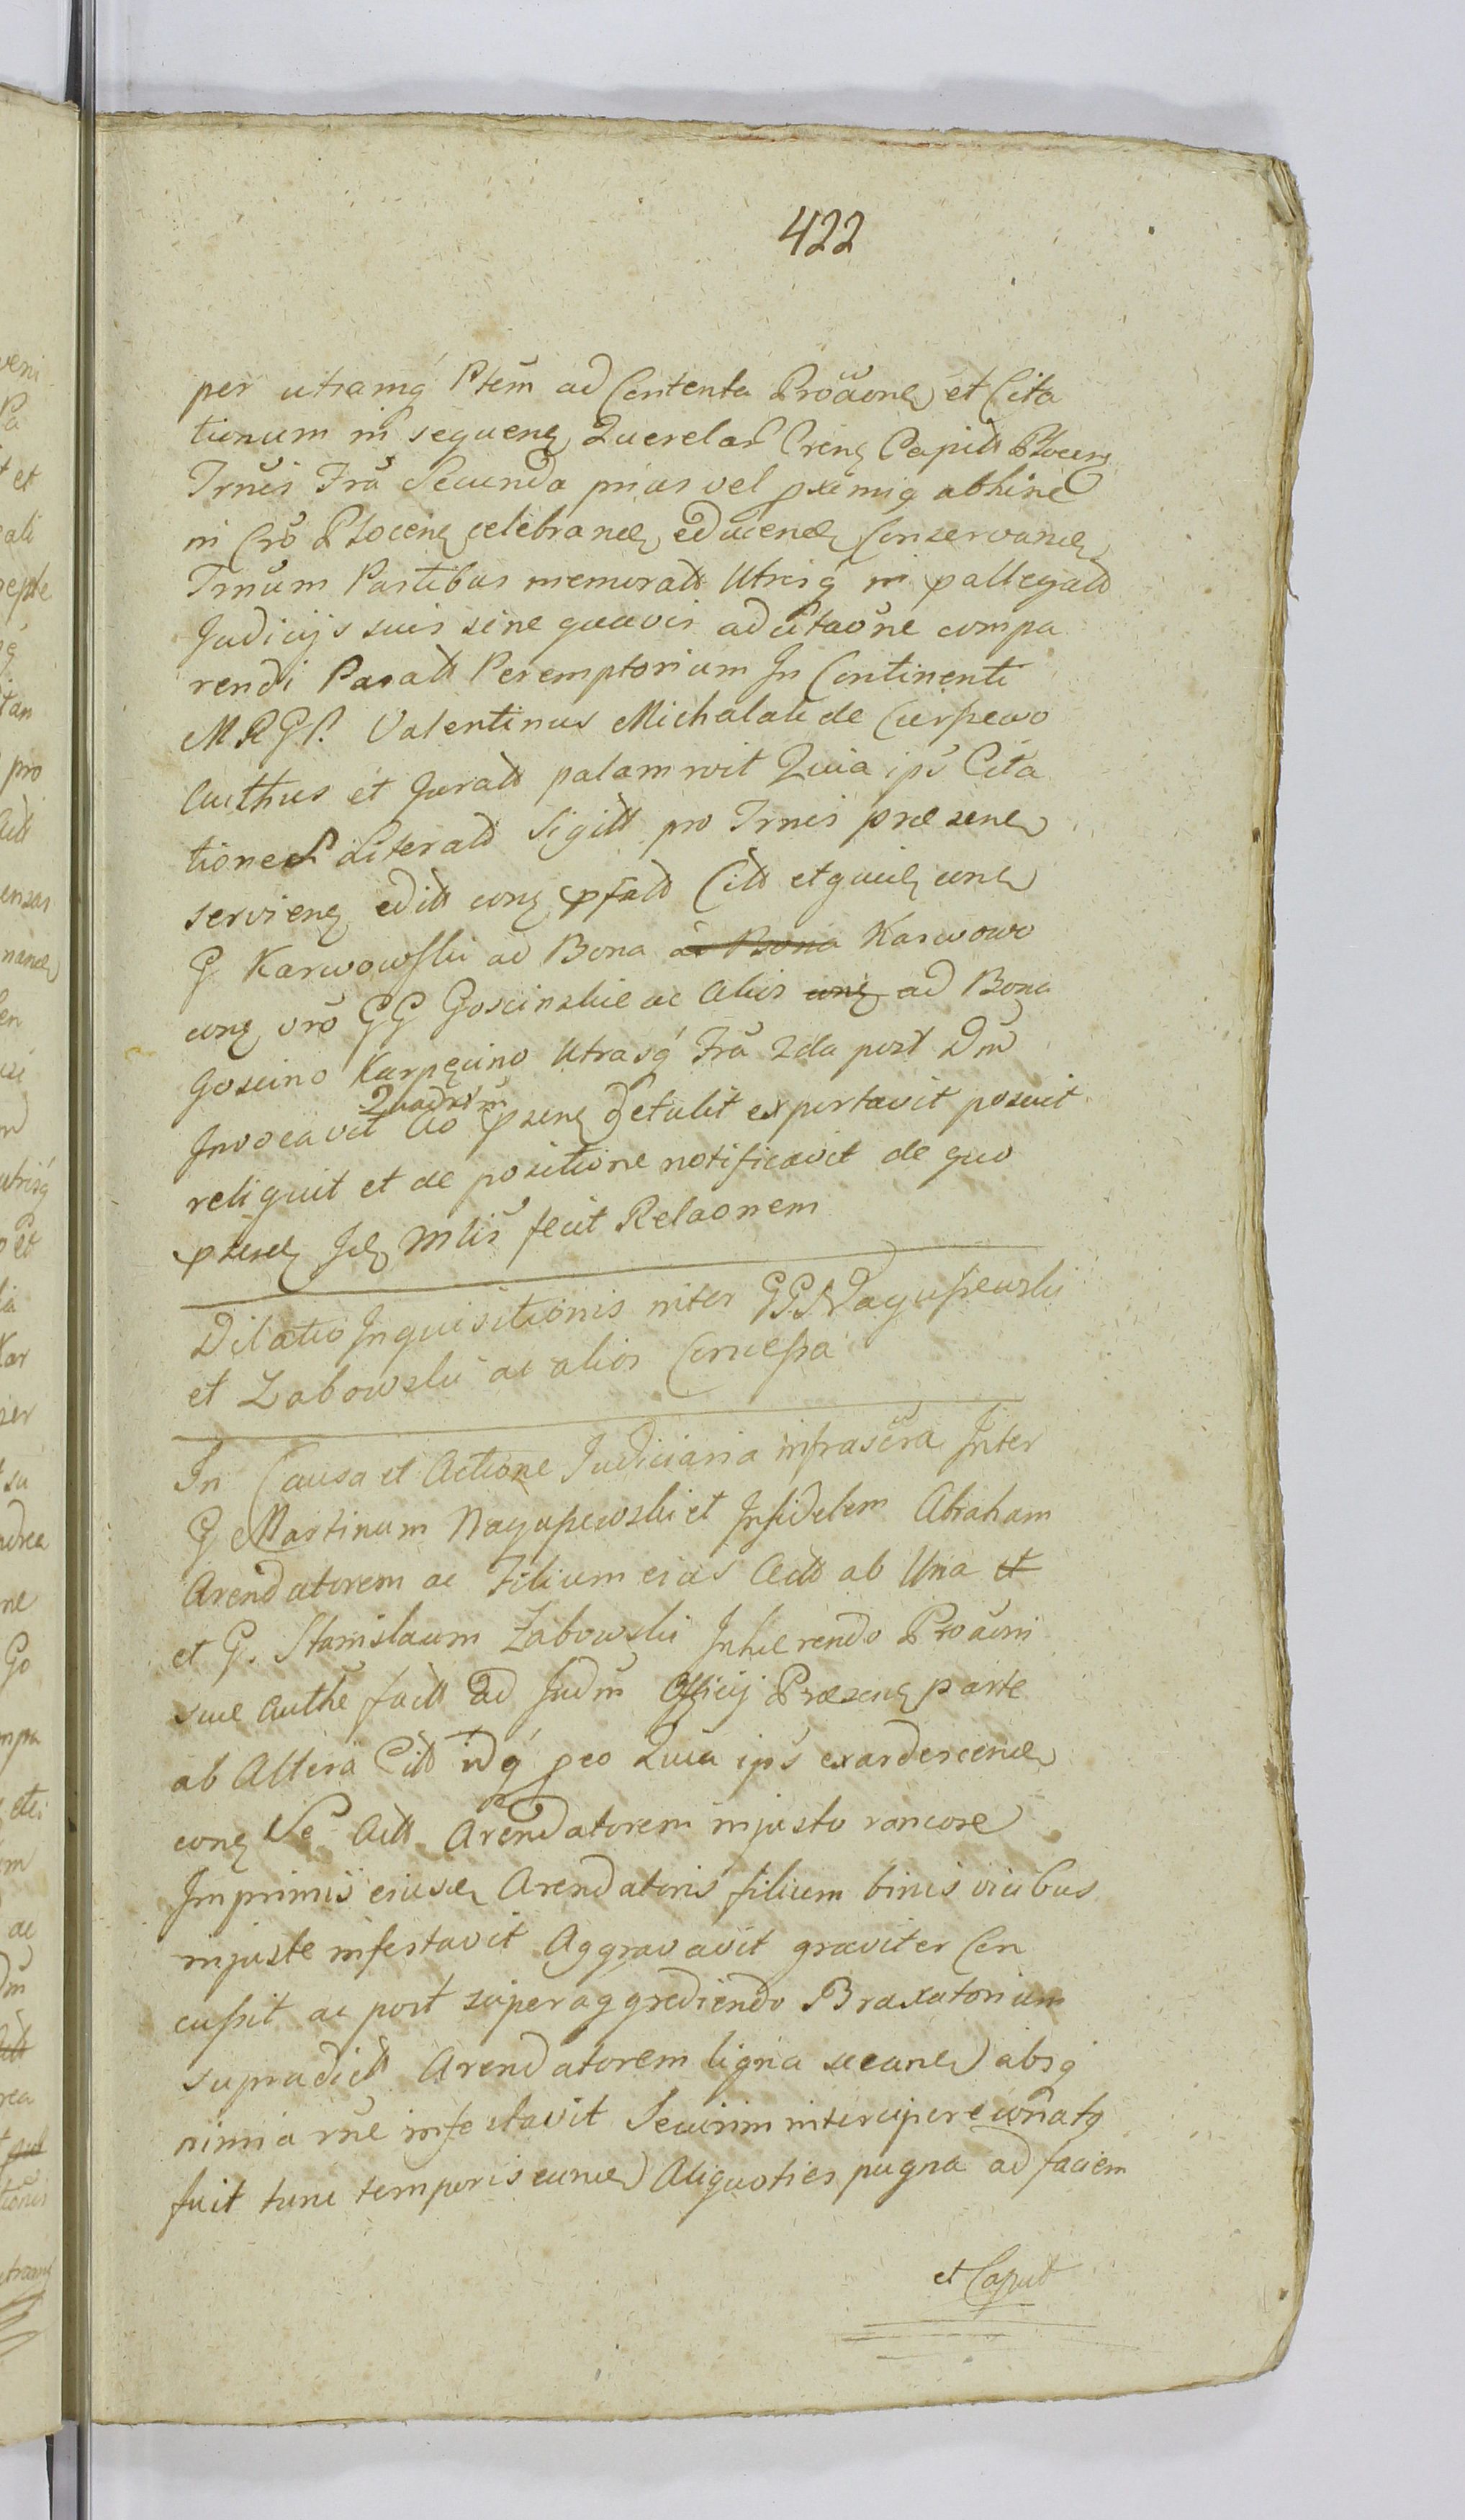 422
per utramq́ Ptem ad Contenta Proãone et Cita
tionum in sequen Querelas Cren Capitt Plocen
Trnis Fra Secunda prias vel pximiq abhinc
in Cro Plocen celebrand educend Conservand
Trnum Partibus memoratt Utrisq́ in pallegatt
Judicijs suis sine quavis adcitaõne compa
rendi Paratt Peremptorium In Continenti
MRGP. Valentinus Michalak de Cierpewo
Authus et Juratt palam rvit Quia ips Cita
tiones Literatt Sigitt pro Trnis præsen
servien editt con pfatt Citt et quid con
G Karwowski ad Bona ad Bona Karwowo
con vro GG Goscinskie ac Alios con ad Bona
Goscino Karpęcino Utrasq́ Fra 2da post Dm̃
Quadrm̃
Invocavit Ao psen Detulit exportavit posuit
reliquit et de positione notificavit de quo
psend Id Mlis fecit Relaonem
Dilatio Inquisitionis inter GG Nagupewski
et Zabowski ac alios Concessa
In Causa et Actione Judiciaria infrascra Inter
G Martinum Nagupewski et Infidelem Abraham
Arendatorem ac Filium eius Actt ab Una et
et G. Stanislaum Zabowski Inhærendo Proãoni
suæ Authe factt Ad Judm̃ Officij Præsen parte
ab Altera Citt idq́ peo Quia ips exardescend
con Se Actt Arendatorem injusto rancore
Imprimis eiusd Arendatoris filium binis vicibus
injuste infestavit Aggravavit graviter Con
cussit ac post superaggrediendo Braxatorium
supradictt Arendatorem ligna secane absq
nimia rne infestavit Securim intercipere conatq
fuit tunc temporis eund Aliquoties pugna ad faciem
et Caput